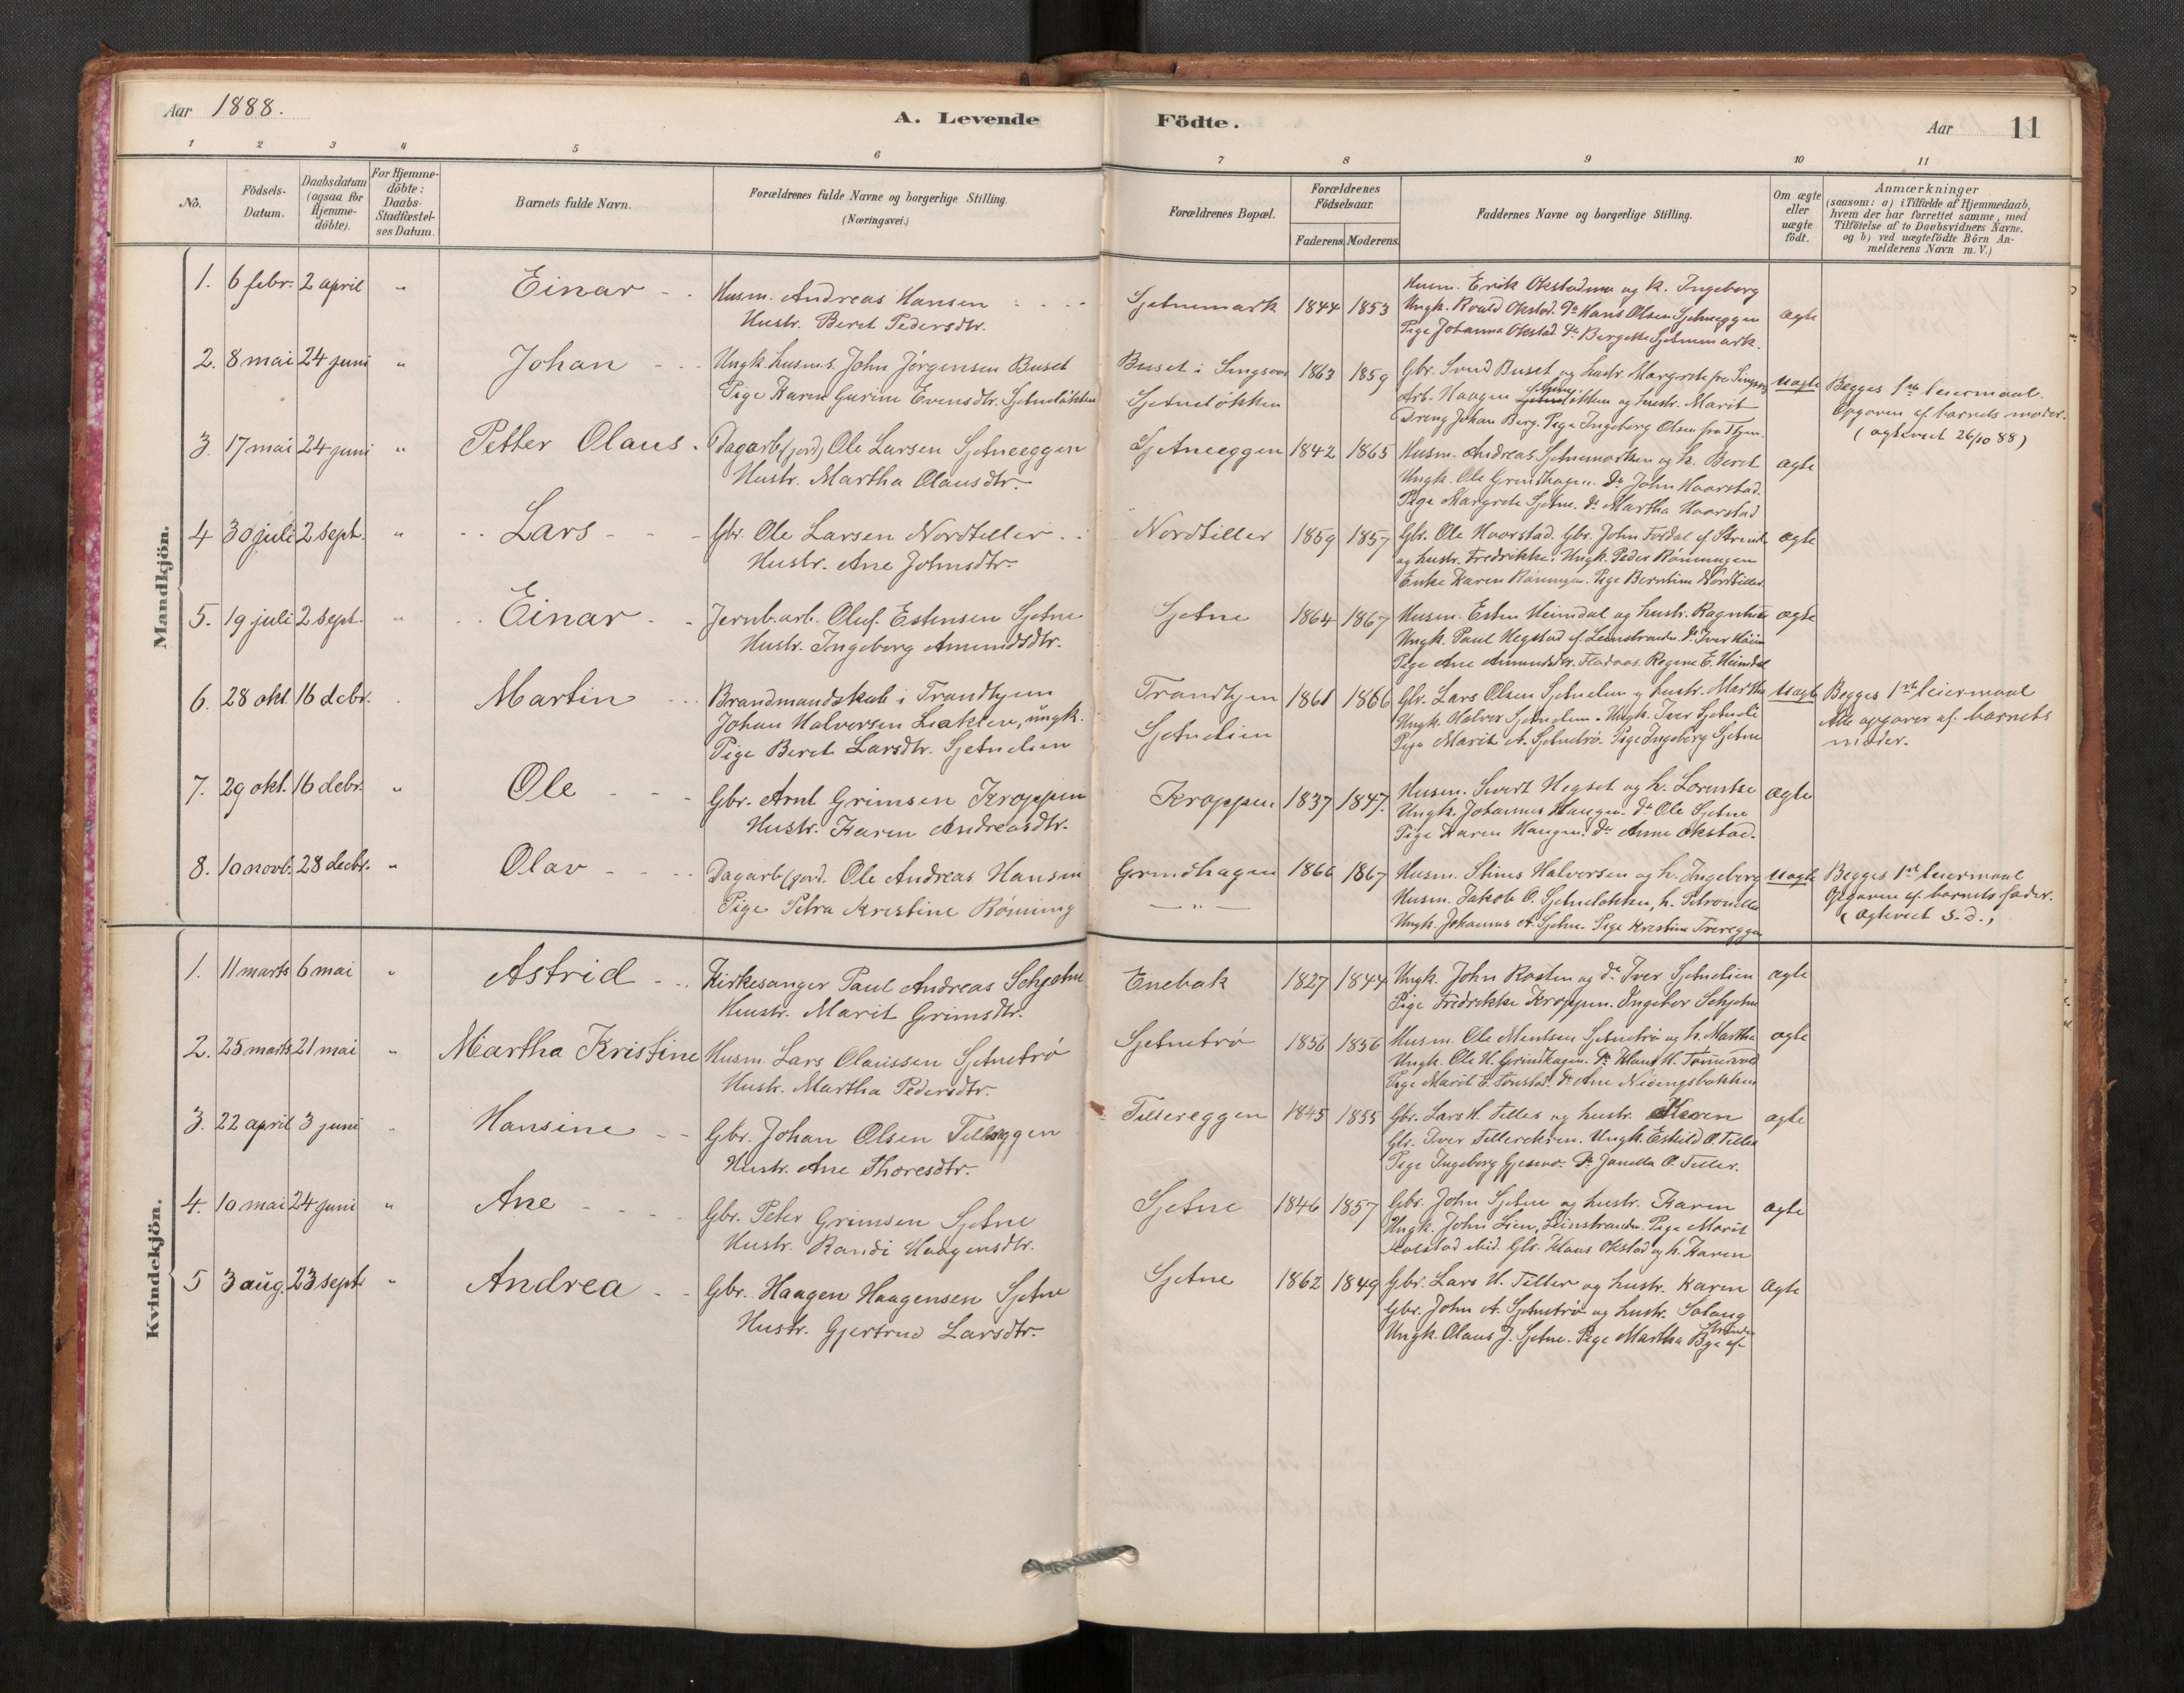 Aar 1888.
A. Levende
Födte.
Aar 11
1 2 3 4 5 6 7 8 9 10 11
Nô.
Födsels-
Datum.
Daabsdatum
(ogsaa for
Hjemme-
döbte).
For Hjemme-
döbte:
Daabs-
Stadfæstel-
ses Datum.
Barnets fulde Navn.
Forældrenes fulde Navne og borgerlige Stilling.
(Næringsvei.)
Forældrenes Bopæl.
Forældrenes
Födselsaar.
Faderens Moderens
Faddernes Navne og borgerlige Stilling.
Om ægte
eller
uægte
födt.
Anmærkninger
(saasom: a) i Tilfælde af Hjemmedaab,
hvem der har forrettet samme, med
Tilföielse af to Daabsvidners Navne,
og b) ved uægtefödte Börn An-
melderens Navn m. V.)
Mandkjön.
1. 6 febr. 2 april " Einar
Husm. Andreas Hansen
Hustr. Beret Pedersdtr.
Sjetnemark 1844 1853
Husm. Erik Okstadmo og h. Ingeborg
Ungk. Roald Okstad. Do Hans Olsen Sjetneeggen
Pige Johanna Okstad. Do Bergette Sjetnemark.
ægte
2. 8 mai 24 juni " Johan
Ungk. husm.s. John Jørgensen Buset
Pige Karen Gurine Evensdtr. Sjetneløkken
Buset i Singsaas 1863 1859
Sjetneløkken
Gbr. Svend Buset og hustr. Margrete fra Singsaas
Arb. Haagen Sjetneløkken og hustr. Marit
Dreng Johan Berg. Pige Ingeborg Olsen fra Thjem.
uægte
Begges 1ste leiermaal.
Opgaven af barnets moder.
(ægteviet 26/10 88)
3. 17 mai 24 juni " Petter Olaus
Dagarb (jord) Ole Larsen Sjetneeggen
Hustr. Martha Olausdtr.
Sjetneeggen 1842 1865
Husm. Andreas Sjetnemarken og h. Beret
Ungk. Ole Grindhagen. Do John Haarstad.
Pige Margrete Sjetne. Do Martha Haarstad
ægte
4 30 juli 2 sept. " Lars
Gbr. Ole Larsen Nordtiller
Hustr. Ane Johnsdtr.
Nordtiller 1859 1857
Gbr. Ole Haarstad. Gbr. John Foldal af Strind
og hustr. Fredrikke. Ungk. Peder Rønningen
Enke Karen Rønningen. Pige Berntine Nordtiller
ægte
5. 19 juli 2 sept. " Einar
Jernb.arb. Oluf Estensen Sjetne
Hustr. Ingeborg Amundsdtr.
Sjetne 1864 1867
Husm. Esten Heimdal og hustr. Ragnhild
Ungk. Paul Hegstad af Leinstranden. Do Iver Høiem
Pige Ane Amundsdtr. Fladaas. Regine E. Heimdal
ægte
6. 28 okt. 16 debr. Martin
Brandmandskab i Trondhjem
Johan Halversen Leaklen, ungk.
Pige Beret Larsdtr. Sjetnelien
Trondhjem 1861 1866
Sjetnelien
Gbr. Lars Olsen Sjetnelien og hustr. Martha
Ungk. Halvor Sjetnelien. Ungk. Iver Sjetneli
Pige Marit A. Sjetnetrø. Pige Ingeborg Sjetne
uægte
Begges 1ste leiermaal
Alle opgaver af barnets
moder.
7. 29 okt. 16 debr. " Ole
Gbr. Arnt Grimsen Kroppen
Hustr. Karen Andreasdtr.
Kroppen 1837 1847.
Husm. Sivert Hegset og h. Lorentse
Ungk. Johannes Haugen. Do Ole Sjetne
Pige Karen Haugen. Do Anne Okstad.
ægte
8. 10 novb. 28 decbr. " Olav
Dagarb (jord. Ole Andreas Hansen
Pige Petra Kristine Rønning
Grindhagen 1866 1867
— " —
Husm. Stines Halversen og h. Ingeborg
Husm. Jakob O. Sjetneløkken, h. Petronelle
Ungk. Johannes A. Sjetne. Pige Kristine Tvereggen
uægte
Begges 1ste leiermaal
Opgaven af barnets fader.
(ægteviet s.d.)
Kvindekjön.
1. 11 marts 6 mai " Astrid
Kirkesanger Paul Andreas Schjetne
Hustr. Marit Grimsdtr.
Enebak 1827 1844
Ungk. John Rosten og do Iver Sjetnelien
Pige Fredrikke Kroppen. Ingebor Schjetne
ægte
2. 25 marts 21 mai " Martha Kristine
Husm. Lars Olaussen Sjetnetrø
Hustr. Martha Pedersdtr.
Sjetnetrø 1856 1856
Husm. Ole Mentsen Sjetnetrø og h. Martha
Ungk. Ole H. Grindhagen. Do Hans H. Tømmervold
Pige Marit E. Tonstad. Do Ane Nidengsbakken
ægte
3. 22 april 3 juni " Hansine
Gbr. Johan Olsen Tillereggen
Hustr. Ane Thoresdtr.
Tillereggen 1845 1855
Gbr. Lars H. Tiller og hustr. Karen
Gbr. Iver Tillerekren. Ungk. Eskild O. Tiller
Pige Ingeborg Gjesmo. Do Janetta O. Tiller.
ægte
4. 10 mai 24 juni " Ane
Gbr. Peter Grimsen Sjetne
Hustr. Randi Haagensdtr.
Sjetne 1846 1857
Gbr. John Sjetne og hustr. Karen
Ungk. John Lien, Leinstranden. Pige Marit
ibid. Gbr. Klaus Okstad og h. Karen
ægte
5 3 aug. 23 septr " Andrea
Gbr. Haagen Haagensen Sjetne
Hustr. Gjertrud Larsdtr.
Sjetne 1862 1849
Gbr. Lars H. Tiller og hustr. Karen
Gbr. John A. Sjetnetrø og hustr. Solaug
Ungk. Olaus J. Sjetne. Pige Martha Bye af Strinden
ægte